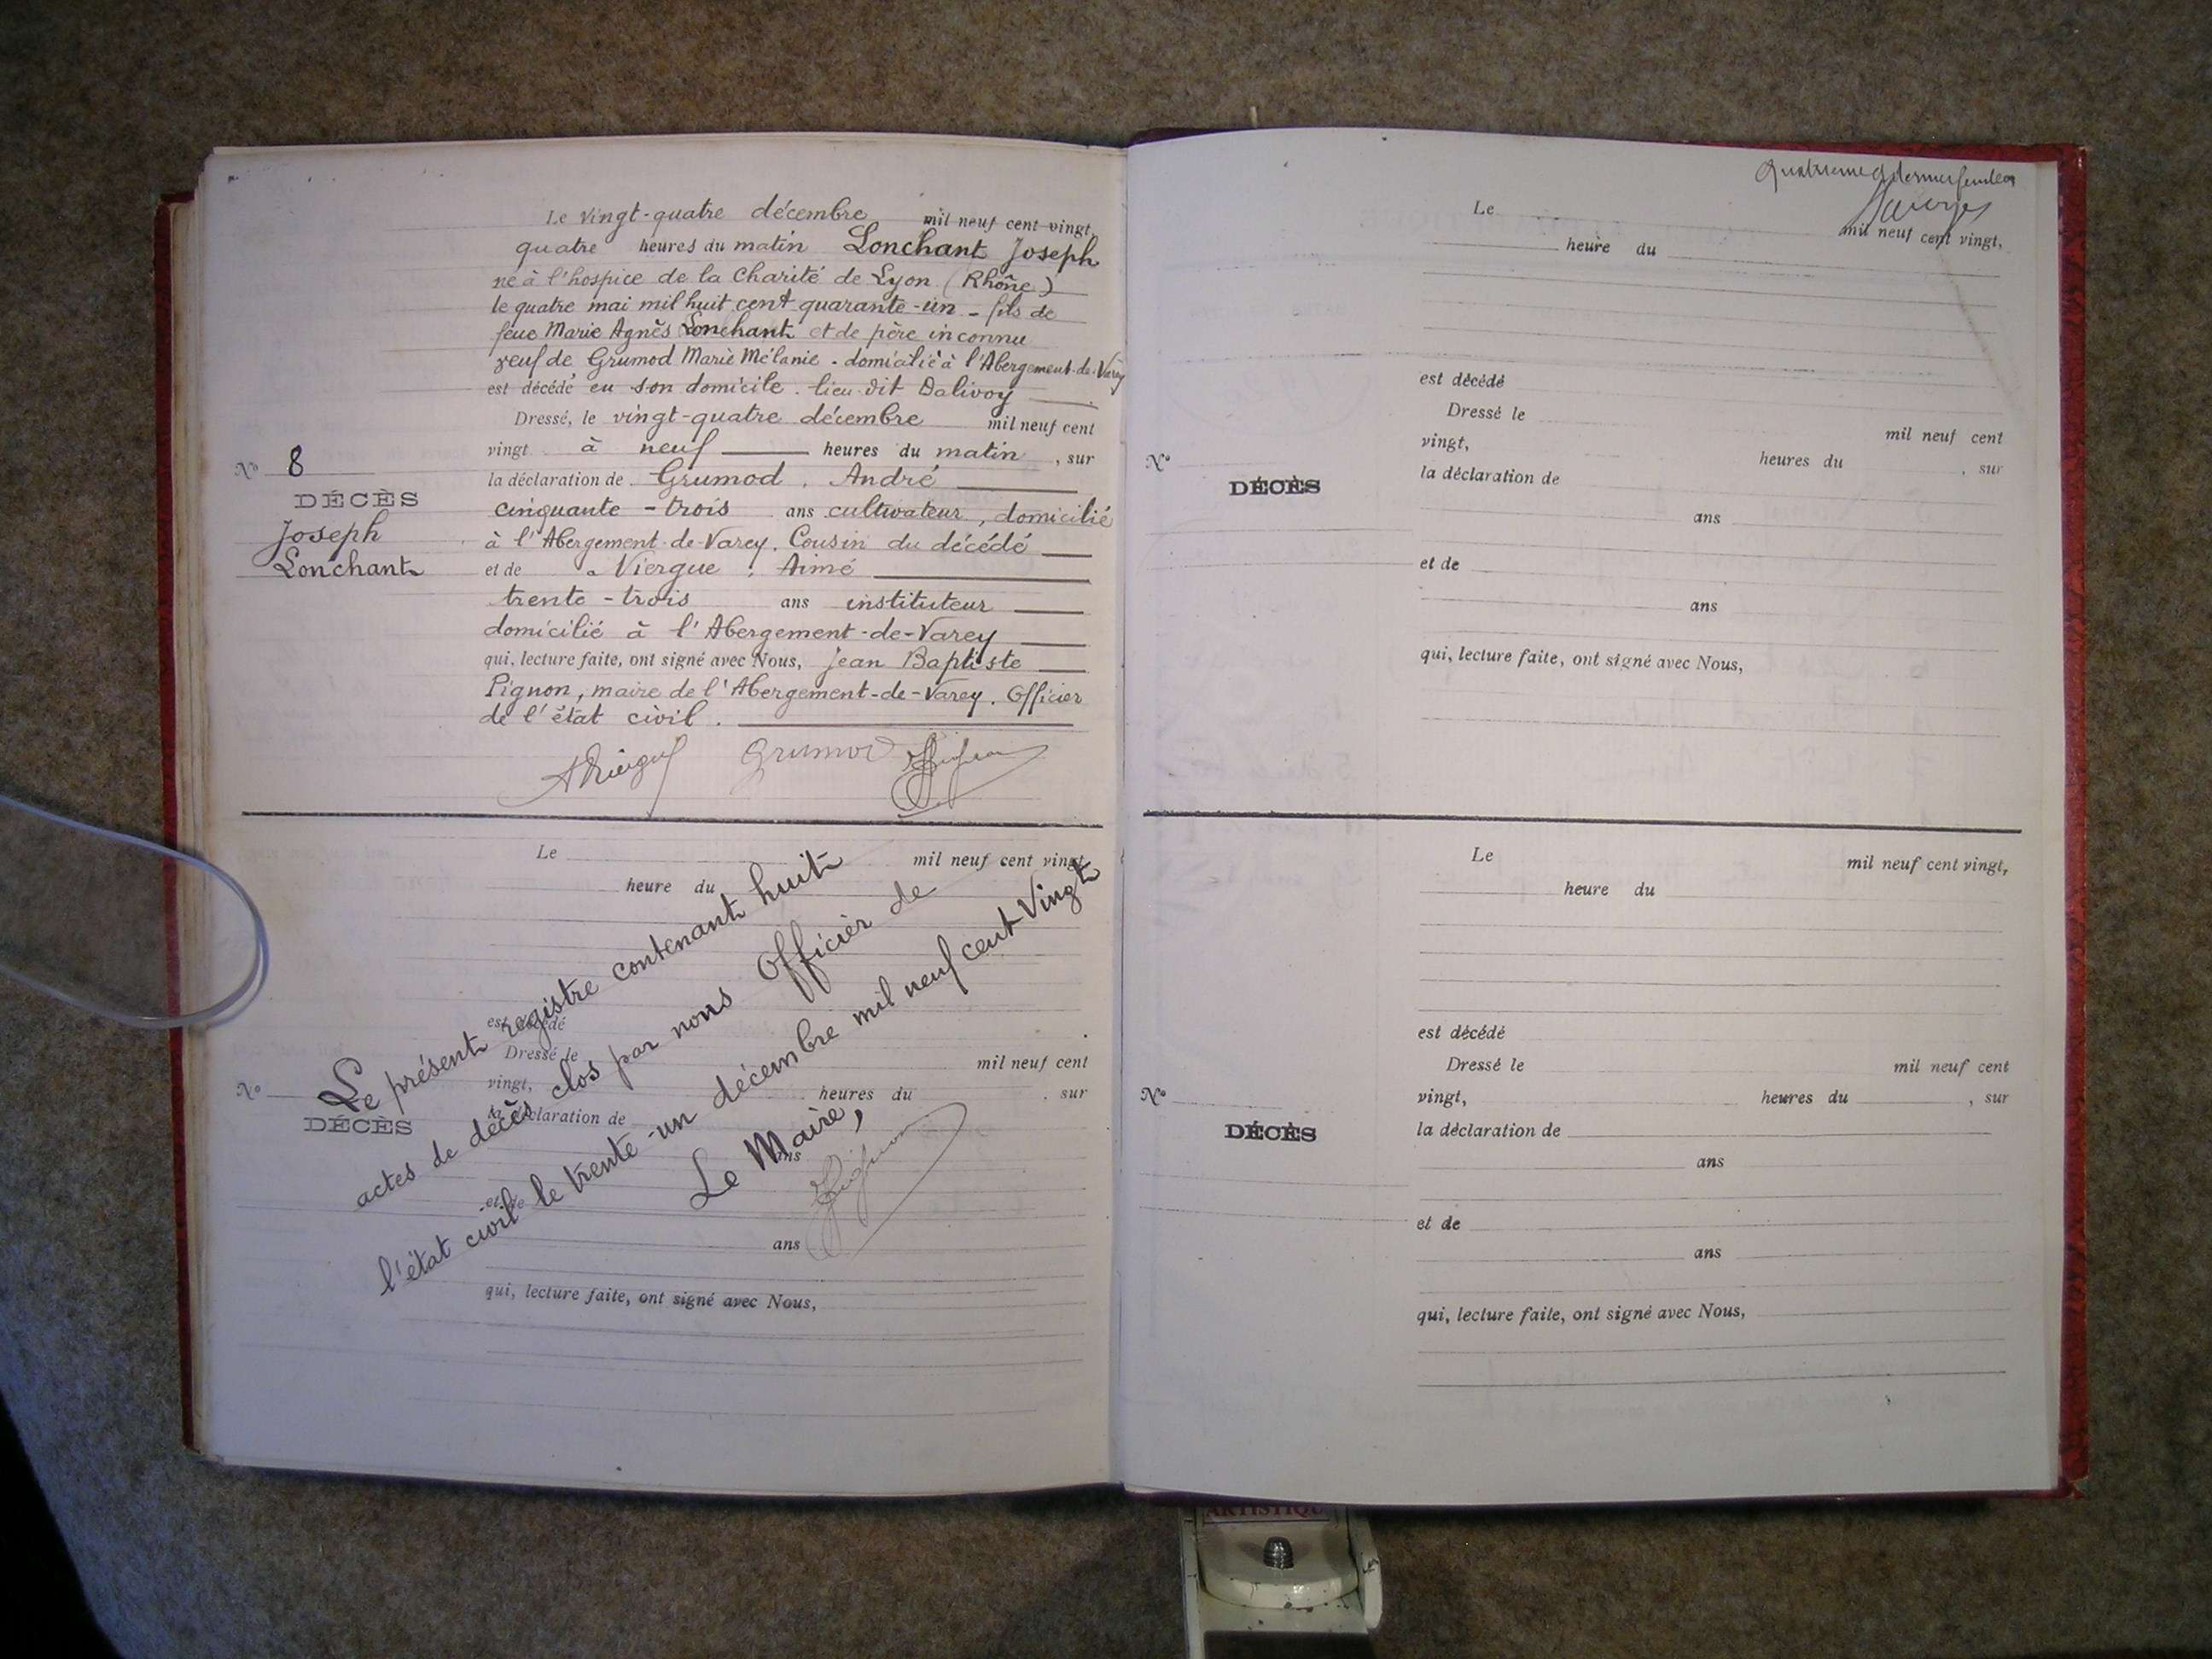 Le vingt-quatre décembre mil neuf cent vingt,
quatre heures du matin Lonchant Joseph
né à l'hospice de la Charité de Lyon (Rhône)
le quatre mai mil huit cent quarante-un - fils de
feue Marie Agnès Lonchant et de père inconnu
veuf de Grumod Marie Mélanie. domicilié à l'Abergement-de-Varey
est décédé en son domicile. lieu dit Dalivoy
Dressé, le vingt-quatre décembre mil neuf cent
vingt à neuf heures du matin, sur
N° 8
DÉCÈS
Joseph
Lonchant
la déclaration de Grumod. André
cinquante-trois ans cultivateur, domicilié
à l'Abergement-de-Varey. Cousin du décédé
et de Viergue. Aimé
trente-trois ans instituteur
domicilié à l'Abergement-de-Varey
qui, lecture faite, ont signé avec Nous, Jean Baptiste
Pignon, maire de l'Abergement-de-Varey. Officier
de l'état civil.
AViergue Grumod Pignon
Le mil neuf cent vingt,
heure du
est décédé
Dressé le mil neuf cent
vingt, heures du , sur
N°
DÉCÈS
la déclaration de
ans
et de
ans
qui, lecture faite, ont signé avec Nous,
Le présent registre contenant huit
actes de décès clos par nous Officier de
l'état civil le trente-un décembre mil neuf cent vingt
Le Maire,
Pignon
Le mil neuf cent vingt,
heure du
est décédé
Dressé le mil neuf cent
vingt, heures du , sur
N°
DÉCÈS
la déclaration de
ans
et de
ans
qui, lecture faite, ont signé avec Nous,
Le mil neuf cent vingt,
heure du
est décédé
Dressé le mil neuf cent
vingt, heures du , sur
N°
DÉCÈS
la déclaration de
ans
et de
ans
qui, lecture faite, ont signé avec Nous,